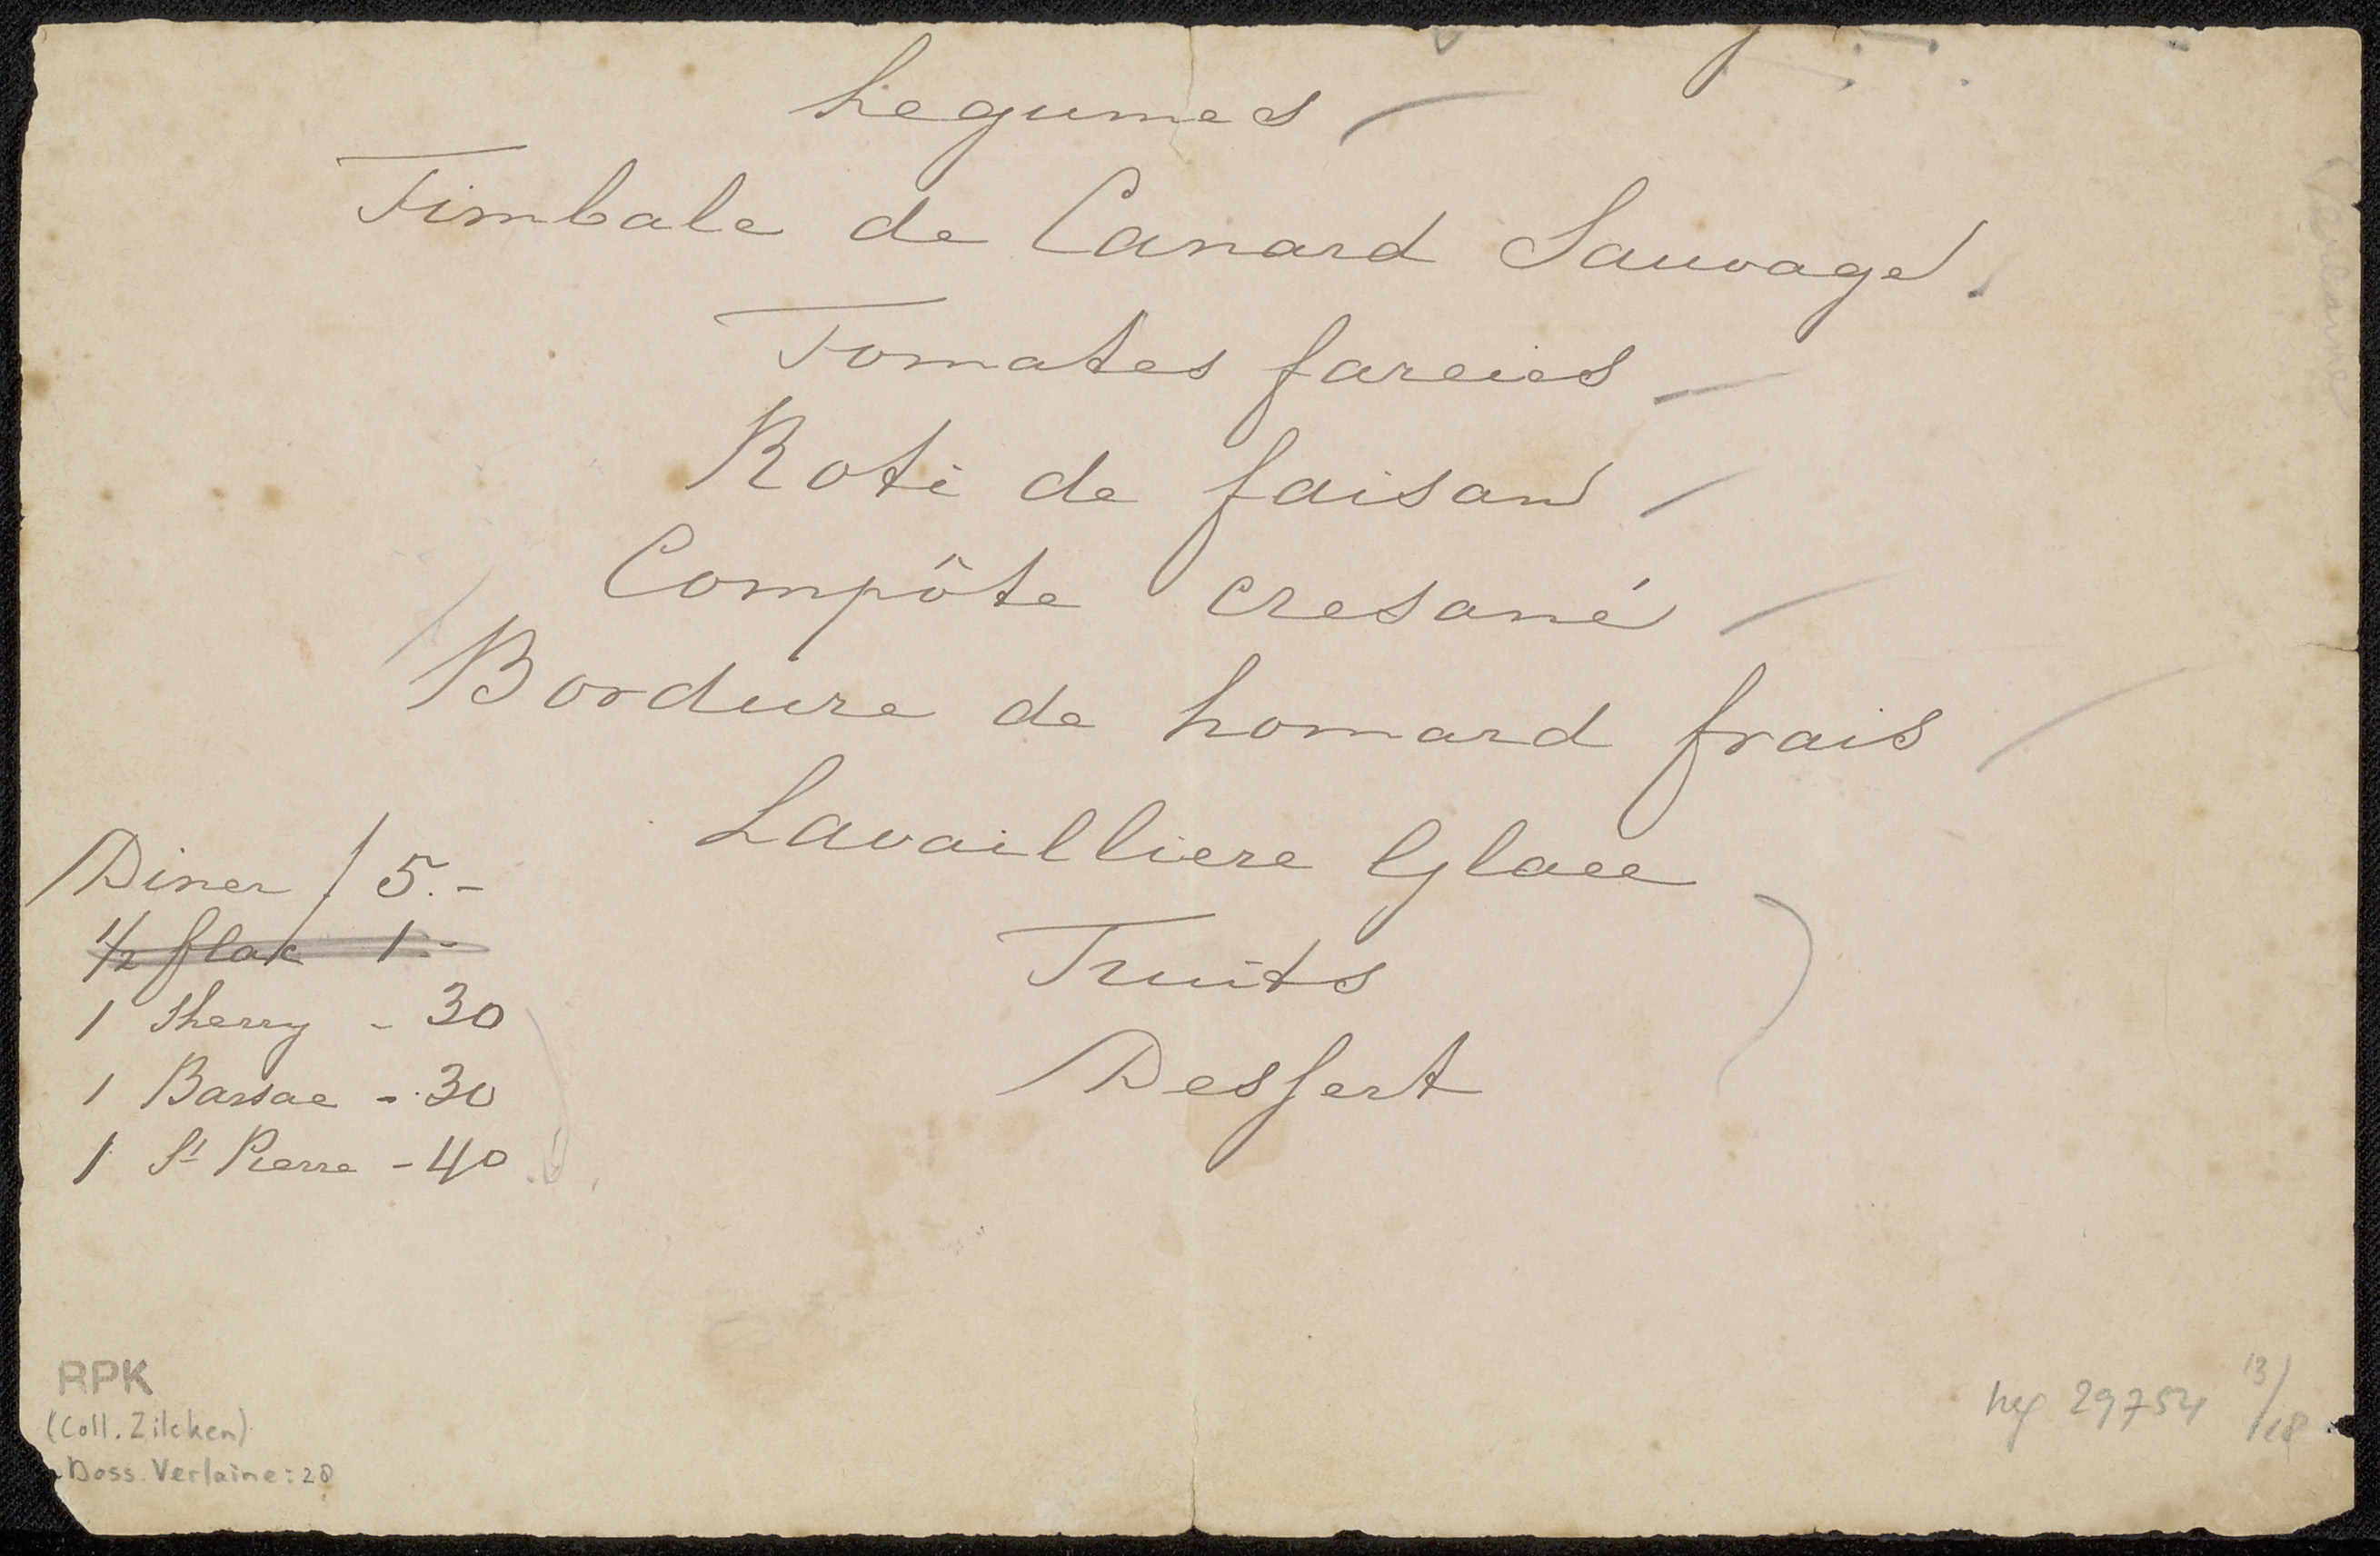 Legumes
Timbale de Canard Sauvage
Tomates farcies
Roti de faisan
Compôte cresané
Bordure de homard frais
Lavailliere Glace
Fruits
Dessert
Diner f 5.-
1/2 flak 1-
1 Sherry - 30
1 Barsac - 30
1 St Pierre - 40
RPK
(Coll. Zilcken)
Doss. Verlaine: 28
29754 13/28